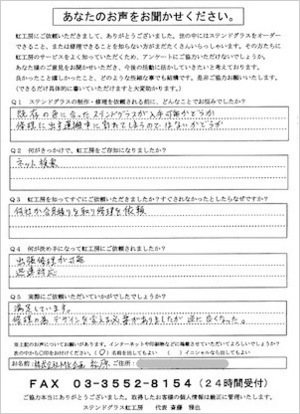 あなたのお声をお聞かせください。
虹工房にご依頼いただきまして、ありがとうございました。世の中にはステンドグラスをオーダー
できること、または修理できることを知らない方がまだたくさんいらっしゃいます。その方たちに
虹工房のサービスをよく知っていただくため、アンケートにご協力いただけないでしょうか。
あなた様のご意見をお聞かせいただき、今後の活動に活かしていきたいと考えております。
良かったこと嬉しかったこと、どのような些細な事でも結構です。是非ご協力お願いいたします。
(できるだけ具体的に書いていただけますと大変助かります。)
Q1 ステンドグラスの制作・修理を依頼される前に、どんなことでお悩みでしたか?
既存の赤に合ったステンドグラスが入手可能かどうか
修理に出す運搬中に割れてしまうのではないかどうか
Q2 何がきっかけで、虹工房をご存知になりましたか?
ネット検索
Q3 虹工房を知ってすぐにご依頼いただきましたか?すぐされなかったとしたらなぜですか?
何社か合見積りを取り修理を依頼
Q4 何が決め手になって虹工房にご依頼されましたか?
出張修理が可能
迅速対応
Q5 実際にご依頼いただいていかがでしたでしょうか?
満足しています。
修理の為デザインを変える必要がありましたが逆に良くなった。
お名前: 松原 ご住所:
FAX 03-3552-8154(24時間受付)
ご協力本当にありがとうございました。取得したお客様の個人情報は厳正に管理いたします。
ステンドグラス虹工房 代表 斎藤 雅也